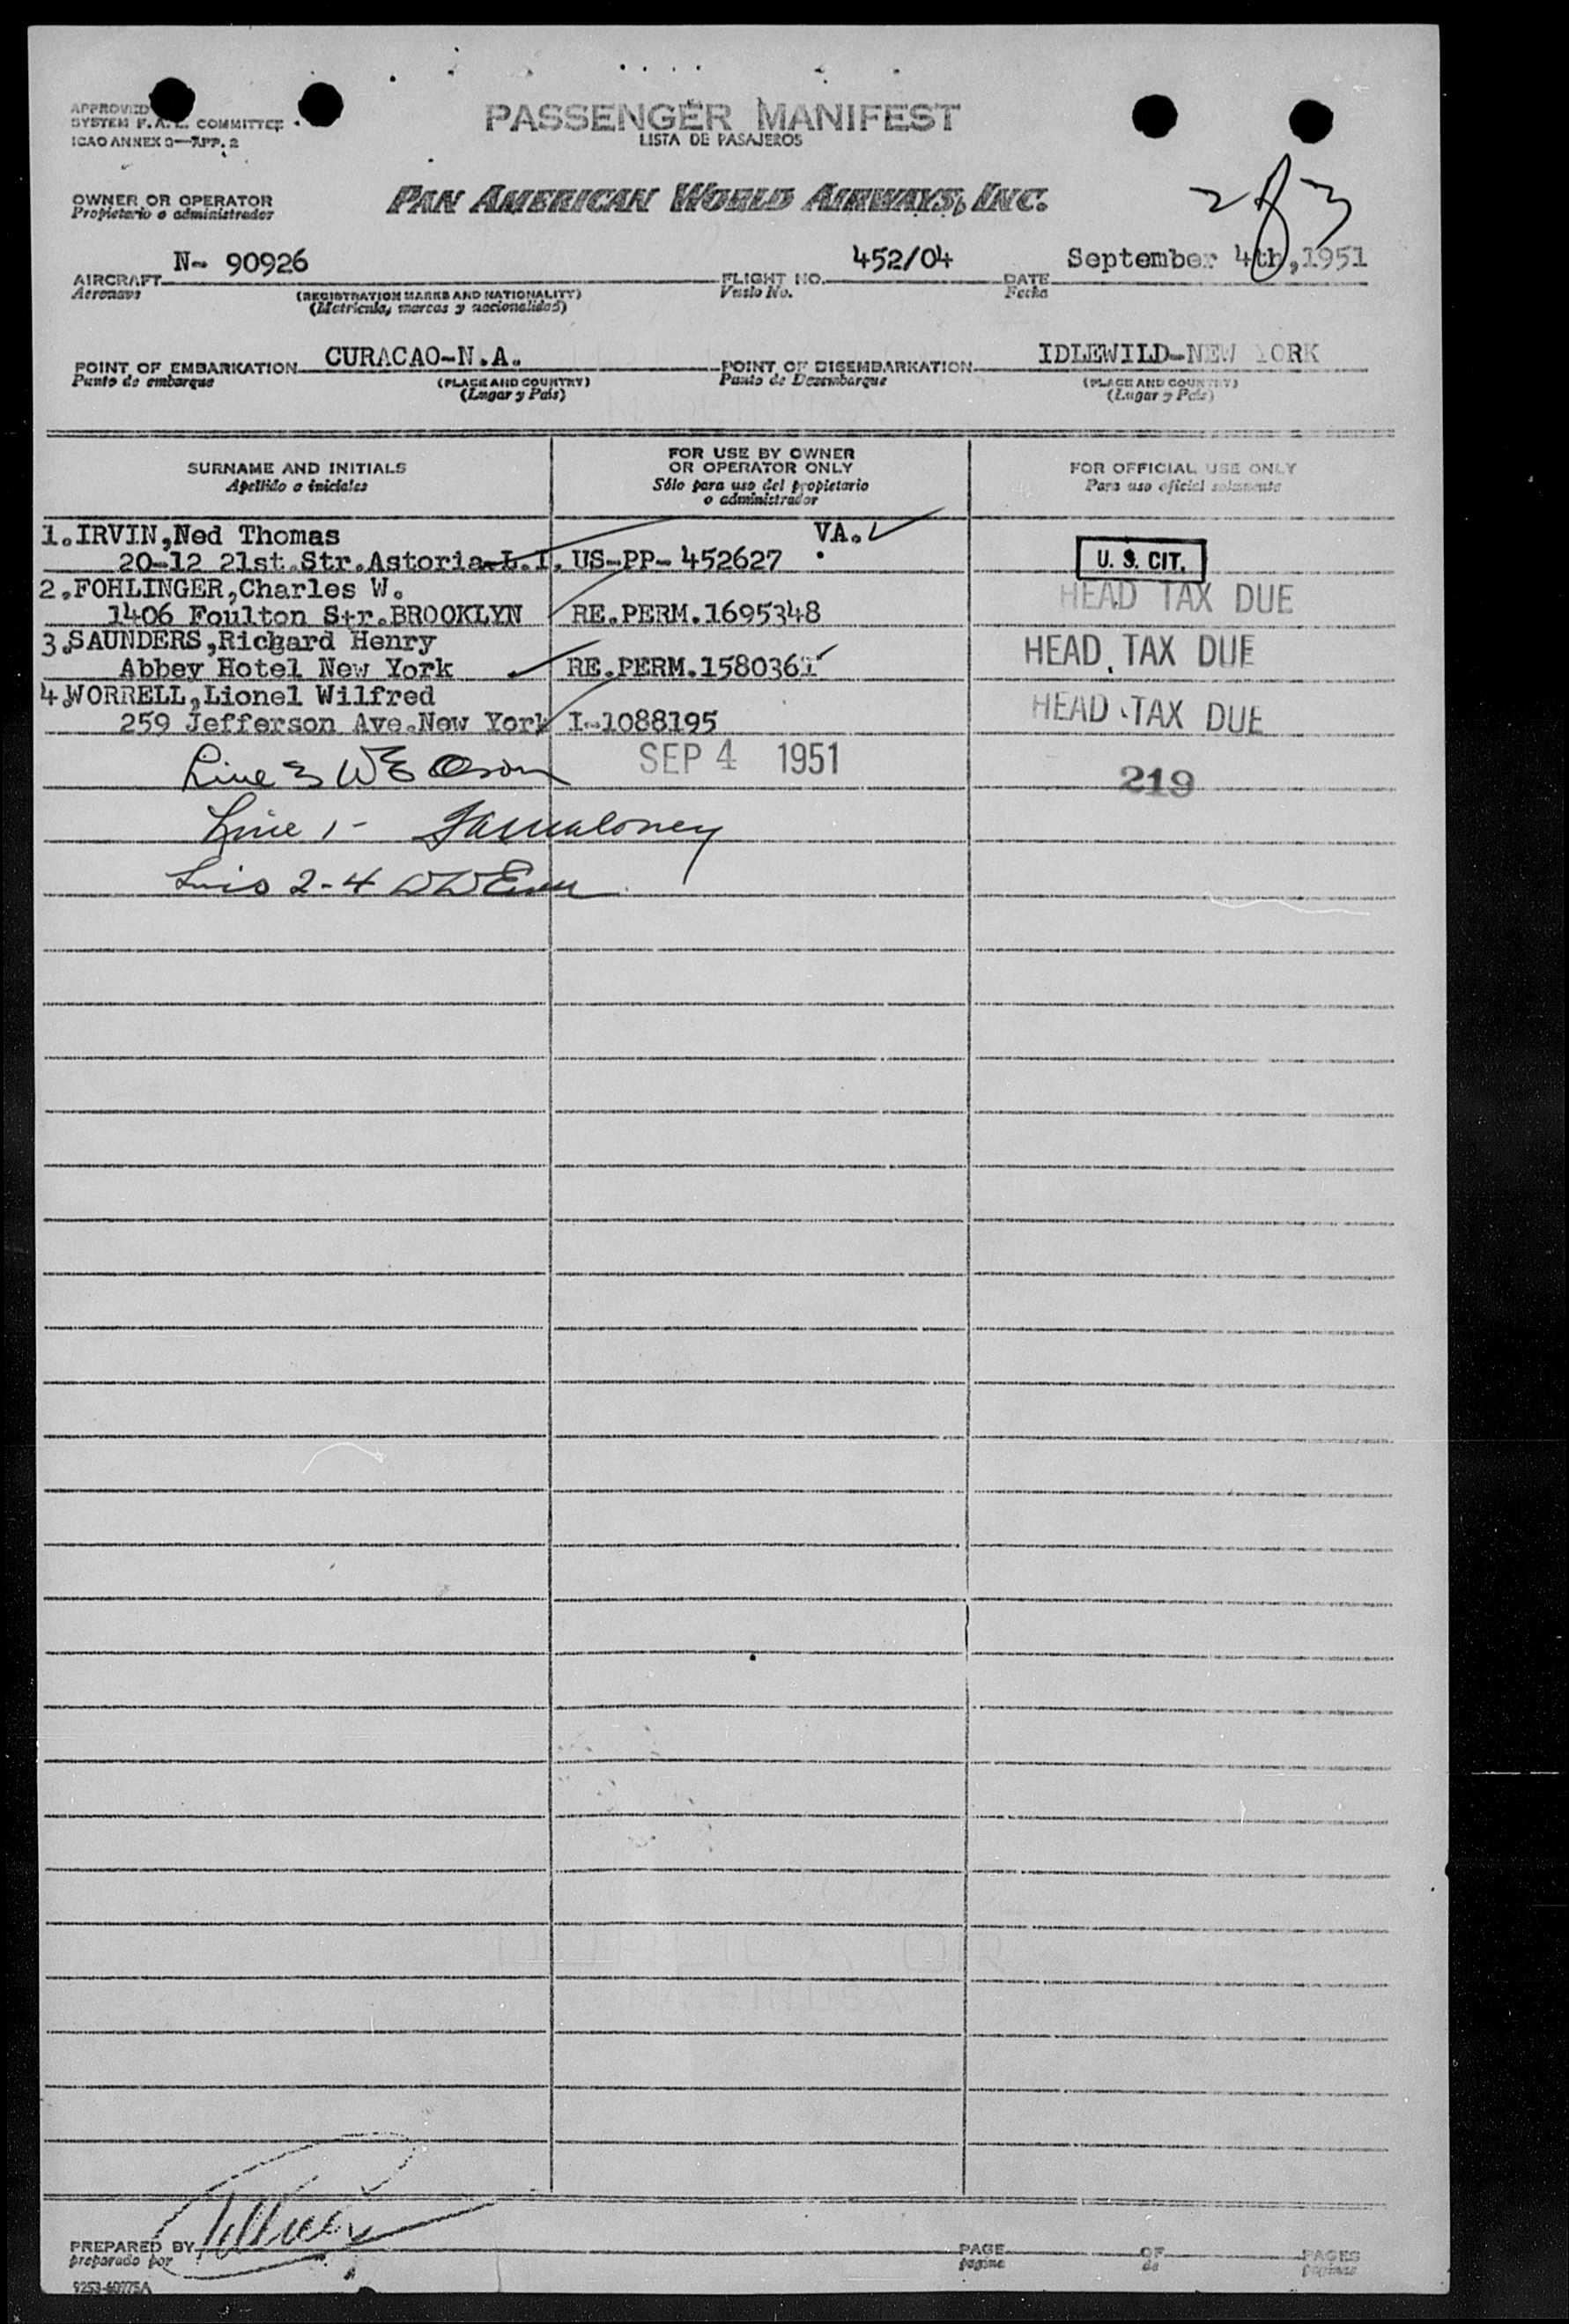 APPROVED
SYSTEM F.A.L. COMMITTEE
ICAO ANNEX 9—APP. 2
PASSENGER MANIFEST
LISTA DE PASAJEROS
OWNER OR OPERATOR
Propietario o administrador
PAN AMERICAN WORLD AIRWAYS, INC.
2 of 3
AIRCRAFT N- 90926 FLIGHT NO. 452/04 DATE September 4th,1951
Aeronave (REGISTRATION MARKS AND NATIONALITY) Vuelo No. Fecha
(Matricula, marcas y nacionalidad)
POINT OF EMBARKATION CURACAO-N.A. POINT OF DISEMBARKATION IDLEWILD-NEW YORK
Punto de embarque (PLACE AND COUNTRY) Punto de Desembarque (PLACE AND COUNTRY)
(Lugar y País) (Lugar y País)
SURNAME AND INITIALS
Apellido o iniciales
FOR USE BY OWNER
OR OPERATOR ONLY
Sólo para uso del propietario
o administrador
FOR OFFICIAL USE ONLY
Para uso oficial solamente
1.IRVIN,Ned Thomas VA.
20-12 21st.Str.Astoria-L.I. US-PP- 452627 U. S. CIT.
2.FOHLINGER,Charles W. HEAD TAX DUE
1406 Foulton Str.BROOKLYN RE.PERM.1695348
3.SAUNDERS,Richard Henry HEAD TAX DUE
Abbey Hotel New York RE.PERM.1580361
4.WORRELL,Lionel Wilfred HEAD TAX DUE
259 Jefferson Ave.New York I-1088195
Line 3 SEP 4 1951 219
Line 1-
2-4
PREPARED BY PAGE OF PAGES
preparado por página de páginas
9253-60775A